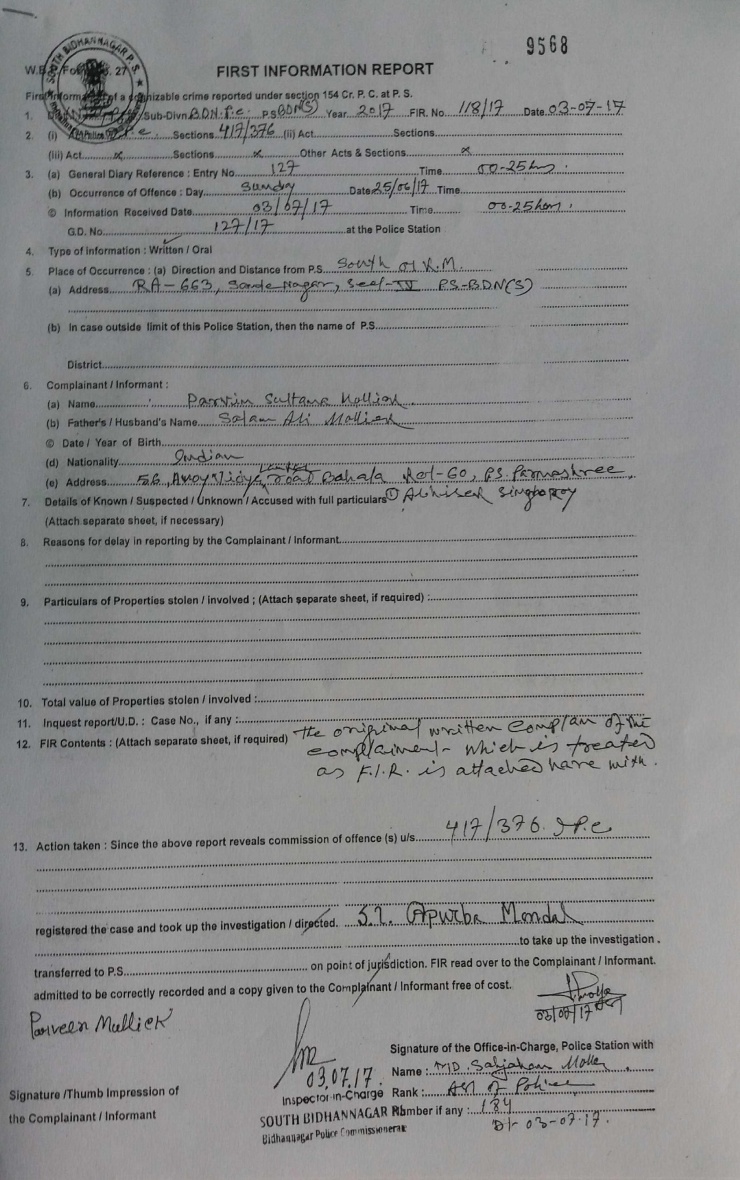 9568
SOUTH BIDHANNAGAR P.S.
W.B. Form No. 27
FIRST INFORMATION REPORT
First Information of a cognizable crime reported under section 154 Cr. P. C. at P. S.
1. Sub-Divn BDN. P.C. P.S BDN(S) Year 2017 FIR. No. 118/17 Date 03-07-17
2. (i) Sections 417/376 (ii) Act Sections
(iii) Act x Sections x Other Acts & Sections x
3. (a) General Diary Reference : Entry No 127 Time 00-25hrs.
(b) Occurrence of Offence : Day Sunday Date 25/06/17 Time
© Information Received Date 03/07/17 Time 00-25hrs.
G.D. No 127/17 at the Police Station
4. Type of information : Written / Oral
5. Place of Occurrence : (a) Direction and Distance from P.S. South
(a) Address RA-663, Sec-IV PS-BDN(S)
(b) In case outside limit of this Police Station, then the name of P.S.
District
6. Complainant / Informant :
(a) Name Parvin Sultana Mallick
(b) Father's / Husband's Name Salam Ali Mallick
© Date / Year of Birth
(d) Nationality Indian
(e) Address 56, road Bahala Kol-60, PS. Parnashree,
7. Details of Known / Suspected / Unknown / Accused with full particulars ① Abhisek Singha Roy
(Attach separate sheet, if necessary)
8. Reasons for delay in reporting by the Complainant / Informant
9. Particulars of Properties stolen / involved ; (Attach separate sheet, if required) :
10. Total value of Properties stolen / involved :
11. Inquest report/U.D. : Case No., if any :
12. FIR Contents : (Attach separate sheet, if required) the original written complain of the
complainent which is treated
as F.I.R. is attached here with.
13. Action taken : Since the above report reveals commission of offence (s) u/s 417/376 I.P.C
registered the case and took up the investigation / directed. S.I. Apurba Mondal
to take up the investigation .
transferred to P.S. on point of jurisdiction. FIR read over to the Complainant / Informant.
admitted to be correctly recorded and a copy given to the Complainant / Informant free of cost.
03/07/17
Parveen Mullick
Signature of the Office-in-Charge, Police Station with
03.07.17.
Name : MD. Saljahan Molla
Inspector-in-Charge
Rank : ASI of Police
Signature /Thumb Impression of
SOUTH BIDHANNAGAR
Number if any : 184
the Complainant / Informant
Bidhannagar Police Commissionerate
Dt- 03-07-17.